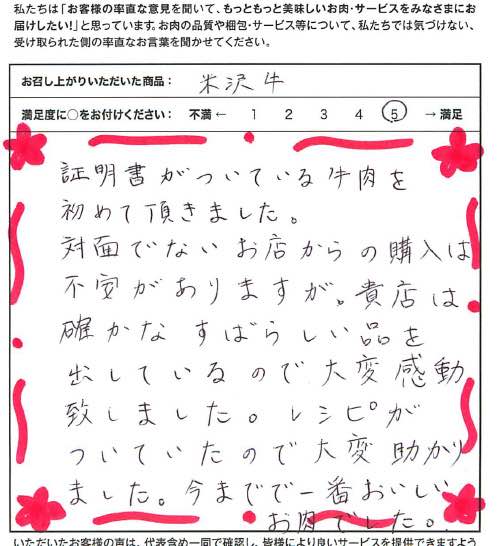 私たちは「お客様の率直な意見を聞いて、もっともっと美味しいお肉・サービスをみなさまにお
届けしたい！」と思っています。お肉の品質や梱包・サービス等について、私たちでは気づけない、
受け取られた側の率直なお言葉を聞かせてください。
お召し上がりいただいた商品： 米沢牛
満足度に○をお付けください： 不満 ← 1 2 3 4 5 → 満足
証明書がついている牛肉を
初めて頂きました。
対面でないお店からの購入は
不安がありますが。貴店は
確かなすばらしい品を
出しているので大変感動
致しました。レシピが
ついていたので大変助かり
ました。今までで一番おいしい
お肉でした。
いただいたお客様の声は、代表含め一同で確認し、皆様により良いサービスを提供できますよう